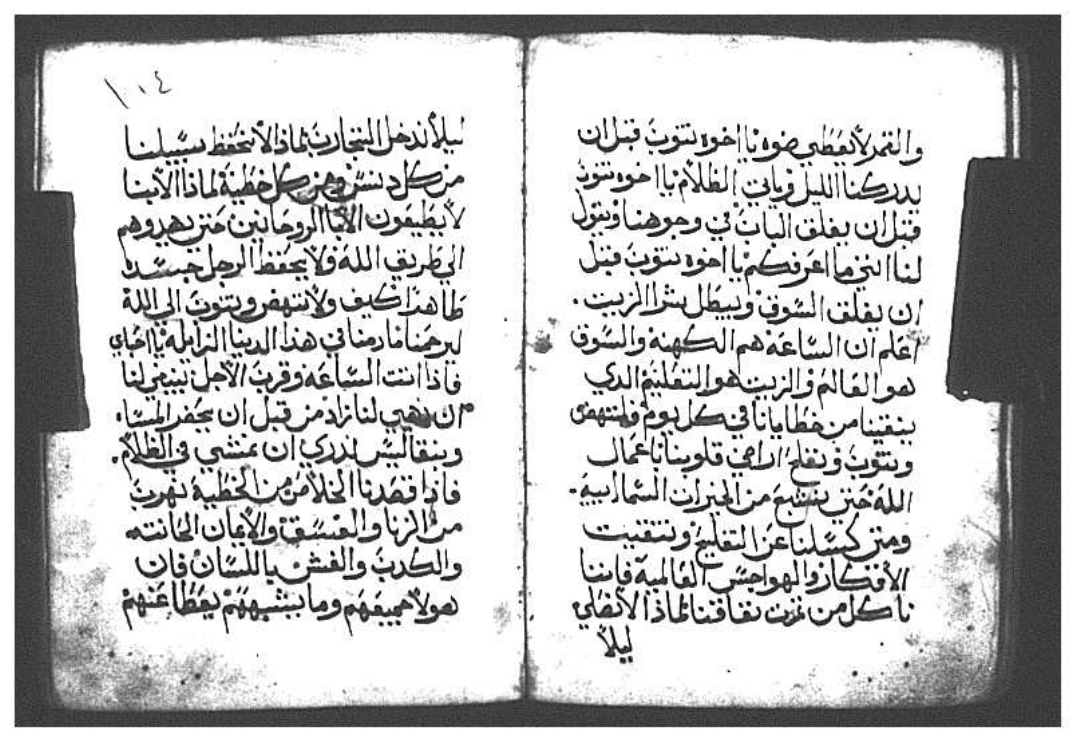 والقمر لا يعطي ضوه يا اخوه نتوب قبل ان
يدركنا الليل وياتي الظلام يا اخوه نتوب
قبل ان يغلق الباب في وجوهنا ويقول
لنا انني ما اعرفكم يا اخوه نتوب قبل
ان يغلق السوق ويبطل بتر الزيت .
اعلم ان الساعه هم الكهنة والسوق
هو العالم والزيت هو التعليم الدي
ينقينا من خطايانا في كل يوم
ونتوب ونفلح اراضي قلوبنا باعمال
الله حتي نشبع من الخيرات السماييه .
ومتي كسلنا عن التفليح ونتقيت
الافكار والهواجس العالمية فاننا
ناكل من نفاقنا لماذا لا نصلي
ليلا
١٠٤
ليلا ندخل التجارب لماذا لا نحفظ سبيلنا
من كل دنس ومن كل خطية لماذا الابنا
لا يطيعون الابا الروحانين حتي يهدوهم
الي طريق الله ولا يحفظ الرجل جسده
طاهدا كيف ولا ننهض ونتوب الي الله
ليرحمنا ما دمنا في هذا الدنيا الزايله يا احباي
فاذا اتت الساعه وقرب الاجل ينبغي لنا
ان نهيي لنا زاد من قبل ان يحضر المساء
ونبقا ليس ندري ان نمشي في الظلام .
فاذا قصدنا الخلاص من الخطية نهرب
من الزنا والفسق والايمان الحانته
والكدب والغش باللسان فان
هولا جميعهم وما يشبههم يعطا عنهم